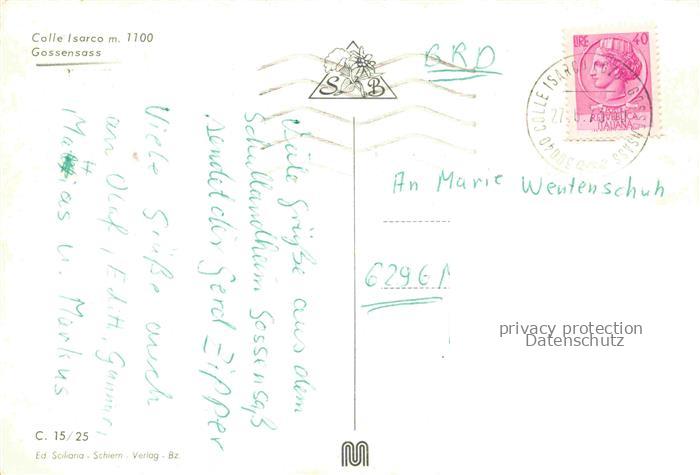 Colle Isarco m. 1100
Gossensass
S B
BRD
LIRE 40
REPUBBLICA
ITALIANA
39040 COLLE ISARCO GOSSENSASS
Viele Grüße aus dem
Schullandheim Gossensaß
sendet dir Gerd Zipper
Viele Grüße auch
an Olaf, Edith, Gunnar,
Mattias u. Markus
An Marie Wentenschuh
6296
privacy protection
Datenschutz
C. 15/25
Ed Sciliaria - Schlern - Verlag - Bz.